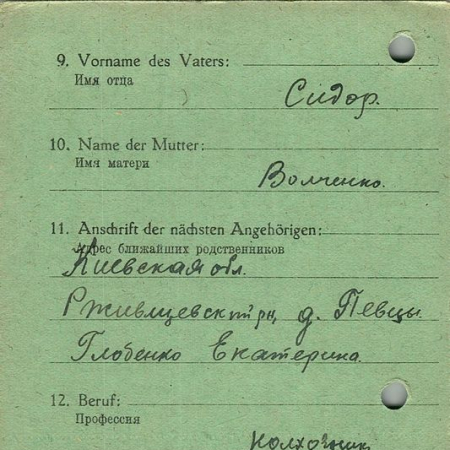 9. Vorname des Vaters:
Имя отца
Сидор.
10. Name der Mutter:
Имя матери
Волченко.
11. Anschrift der nächsten Angehörigen:
Адрес ближайших родственников
Киевская обл.
Рживщевск рн, д. Певцы
Глобенко Екатерина
12. Beruf:
Профессия
колхозник